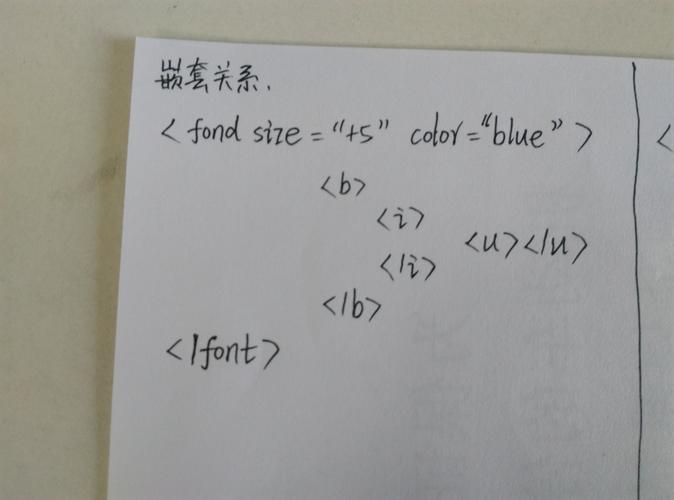 嵌套关系.
<fond size="+5" color="blue">
<b>
<i>
<u></u>
</i>
</b>
</font>
<